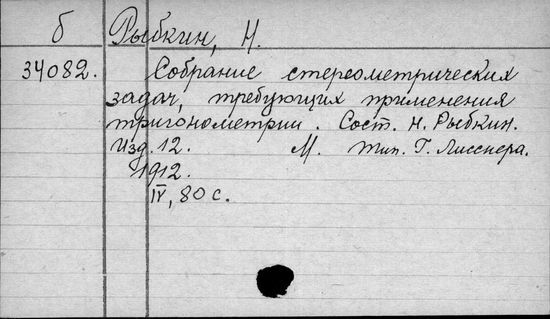 б Рыбкин, Н.
34082. Собрание стереометрических
задач, требующих применения
тригонометрии. Сост. Н. Рыбкин.
Изд. 12. М. Тип. Г. Лисснера.
1912.
IV, 80 с.